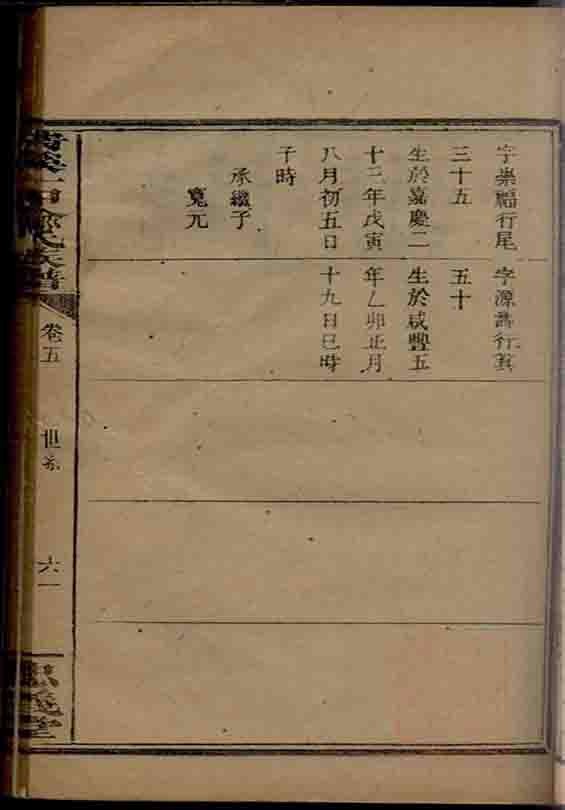 字崇福行尾
三十五
生於嘉慶二
十三年戊寅
八月初五日
子時
承繼子
寬元
字源壽行箕
五十
生於咸豐五
年乙卯正月
十九日巳時
氏族譜
卷五
世系
六一
義堂